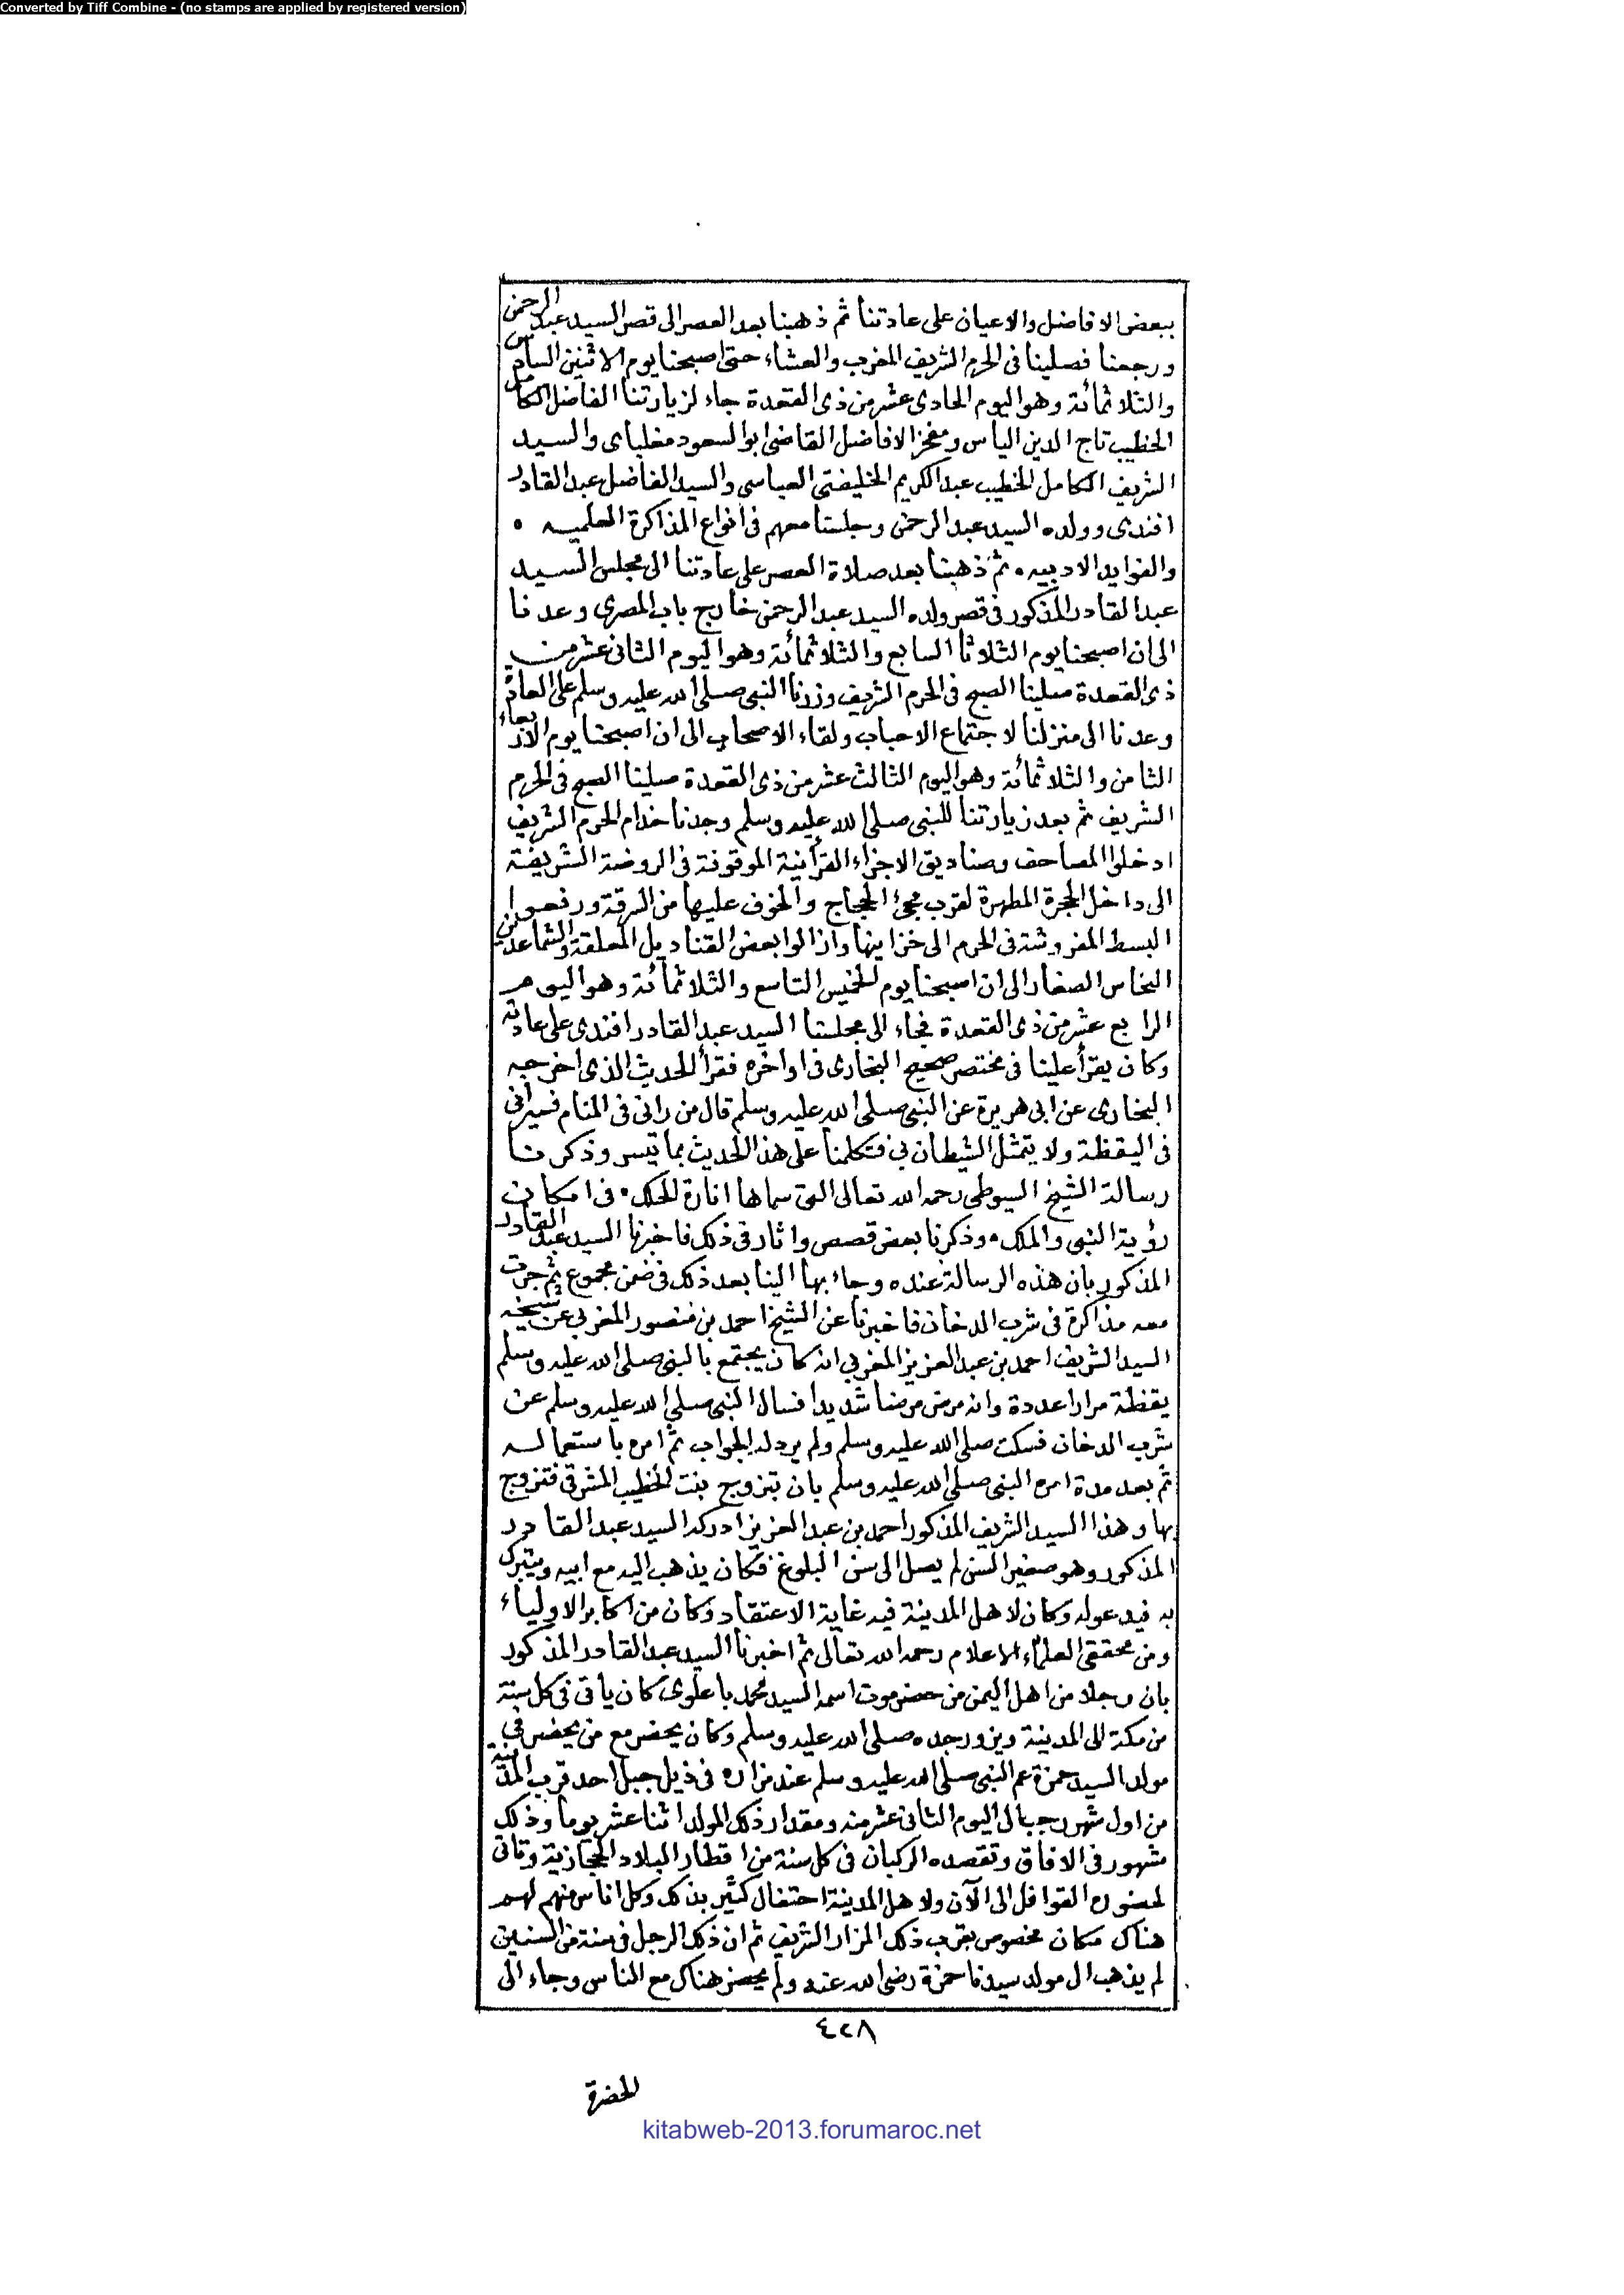 Converted by Tiff Combine - (no stamps are applied by registered version)
ببعض الافاضل والاعيان على عادتنا ثم ذهبنا بعد العصر الى قصر السيد عبد الرحمن
ورجعنا فصلينا فى الحرم الشريف المغرب والعشاء حتى اصبحنا يوم الاثنين السادس
والثلاثمائة وهو اليوم الحادى عشر من ذى القعدة جاء لزيارتنا الفاضل الكامل
الخطيب تاج الدين الياس ومفخر الافاضل القاضى ابو السعود مغلباى والسيد
الشريف الكامل الخطيب عبد الكريم الخليفتى العباسى والسيد الفاضل عبد القادر
افندى وولده السيد عبد الرحمن وجلسنا معهم فى انواع المذاكرة العلميه ٠
والفوايد الادبيه ٠ ثم ذهبنا بعد صلاة العصر على عادتنا الى مجلس السيد
عبد القادر المذكور فى قصر ولده السيد عبد الرحمن خارج باب المصرى وعدنا
الى ان اصبحنا يوم الثلاثا السابع والثلاثمائة وهو اليوم الثانى عشر من
ذى القعدة صلينا الصبح فى الحرم الشريف وزرنا النبى صلى الله عليه وسلم على العادة
وعدنا الى منزلنا لاجتماع الاحباب ولقاء الاصحاب الى ان اصبحنا يوم الاربعاء
الثامن والثلاثمائة وهو اليوم الثالث عشر من ذى القعدة صلينا الصبح فى الحرم
الشريف ثم بعد زيارتنا للنبى صلى الله عليه وسلم وجدنا خدام الحرم الشريف
ادخلوا المصاحف وصناديق الاجزاء القرآنية الموقوفة فى الروضة الشريفة
الى داخل الحجرة المطهرة لقرب مجئ الحجاج والخوف عليها من السرقة ورفعوا
البسط المفروشة فى الحرم الى خزاينها وازالوا بعض القناديل المعلقة والشماعدين
النحاس الصغار الى ان اصبحنا يوم الخميس التاسع والثلاثمائة وهو اليوم
الرابع عشر من ذى القعدة فجاء الى مجلسنا السيد عبد القادر افندى على عادته
وكان يقرأ علينا فى مختصر صحيح البخارى فى اواخره فقرأ الحديث الذى اخرجه
البخارى عن ابى هريرة عن النبى صلى الله عليه وسلم قال من رانى فى المنام فسيرانى
فى اليقظة ولا يتمثل الشيطان بى فتكلمنا على هذا الحديث بما تيسر وذكرنا
رسالة الشيخ السيوطى رحمه الله تعالى التى سماها انارة الحلك ٠ فى امكان
رؤية النبى والملك ٠ وذكرنا بعض قصص واثار فى ذلك فاخبرنا السيد عبد القادر
المذكور بان هذه الرسالة عنده وجاء بها الينا بعد ذلك فى ضمن مجموع ثم جرت
معه مذاكرة فى شرب الدخان فاخبرنا عن الشيخ احمد بن منصور المغربى عن شيخه
السيد الشريف احمد بن عبد العزيز المغربى انه كان يجتمع بالنبى صلى الله عليه وسلم
يقظة مرارا عددة وانه مرض مرضا شديدا فسال النبى صلى الله عليه وسلم عن
شرب الدخان فسكت صلى الله عليه وسلم ولم يرد له الجواب ثم امره باستعماله
ثم بعد مدة امره النبى صلى الله عليه وسلم بان يتزوج بنت الخطيب المشرقى فتزوج
بها وهذا السيد الشريف المذكور احمد بن عبد العزيز ادركه السيد عبد القادر
المذكور وهو صغير السن لم يصل الى سن البلوغ فكان يذهب اليه مع ابيه ويتبرك
به فيدعو له وكان لاهل المدينة فيه غاية الاعتقاد وكان من اكابر الاولياء
ومن محققى العلماء الاعلام رحمه الله تعالى ثم اخبرنا السيد عبد القادر المذكور
بان رجلا من اهل اليمن من حضرموت اسمه السيد محمد باعلوى كان ياتى فى كل سنة
من مكة الى المدينة ويزور جده صلى الله عليه وسلم وكان يحضر مع من يحضر فى
مولد السيد حمزة عم النبى صلى الله عليه وسلم عند مزاره فى ذيل جبل احد قرب المدينة
من اول شهر رجب الى اليوم الثانى عشر منه ومقدار ذلك المولد اثنا عشر يوما وذلك
مشهور فى الافاق وتقصده الركبان فى كل سنة من اقطار البلاد الحجازية وتاتى
لحضوره القوافل الى الآن ولاهل المدينة احتفال كثير بذلك وكل اناس منهم لهم
هناك مكان مخصوص بقرب ذلك المزار الشريف ثم ان ذلك الرجل فى سنة من السنين
لم يذهب الى مولد سيدنا حمزة رضى الله عنه ولم يحضر هناك مع الناس وجاء الى
٤٢٨
الحضرة
kitabweb-2013.forumaroc.net